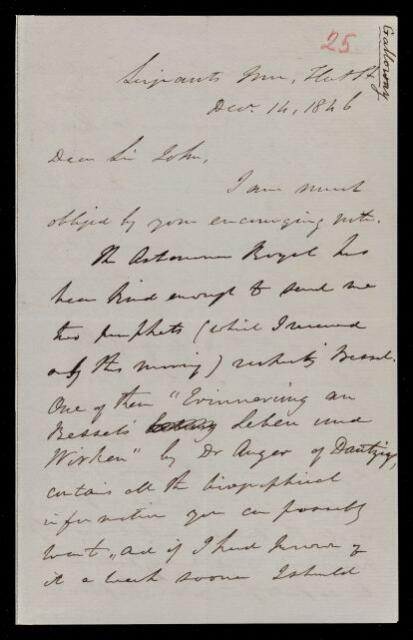 25
Galloway
Serjeants Inn, Fleet St
Decr. 14, 1846
Dear Sir John,
I am much
obliged by your encouraging note.
The Astronomer Royal has
been kind enough to send me
two pamphlets (which I received
only this morning) respecting Bessel.
One of them "Erinnerung an
Bessel's Leben und
Wirken" by Dr Anger of Dantzig,
contains all the biographical
information you can possibly
want, and if I had known of
it a week sooner I should